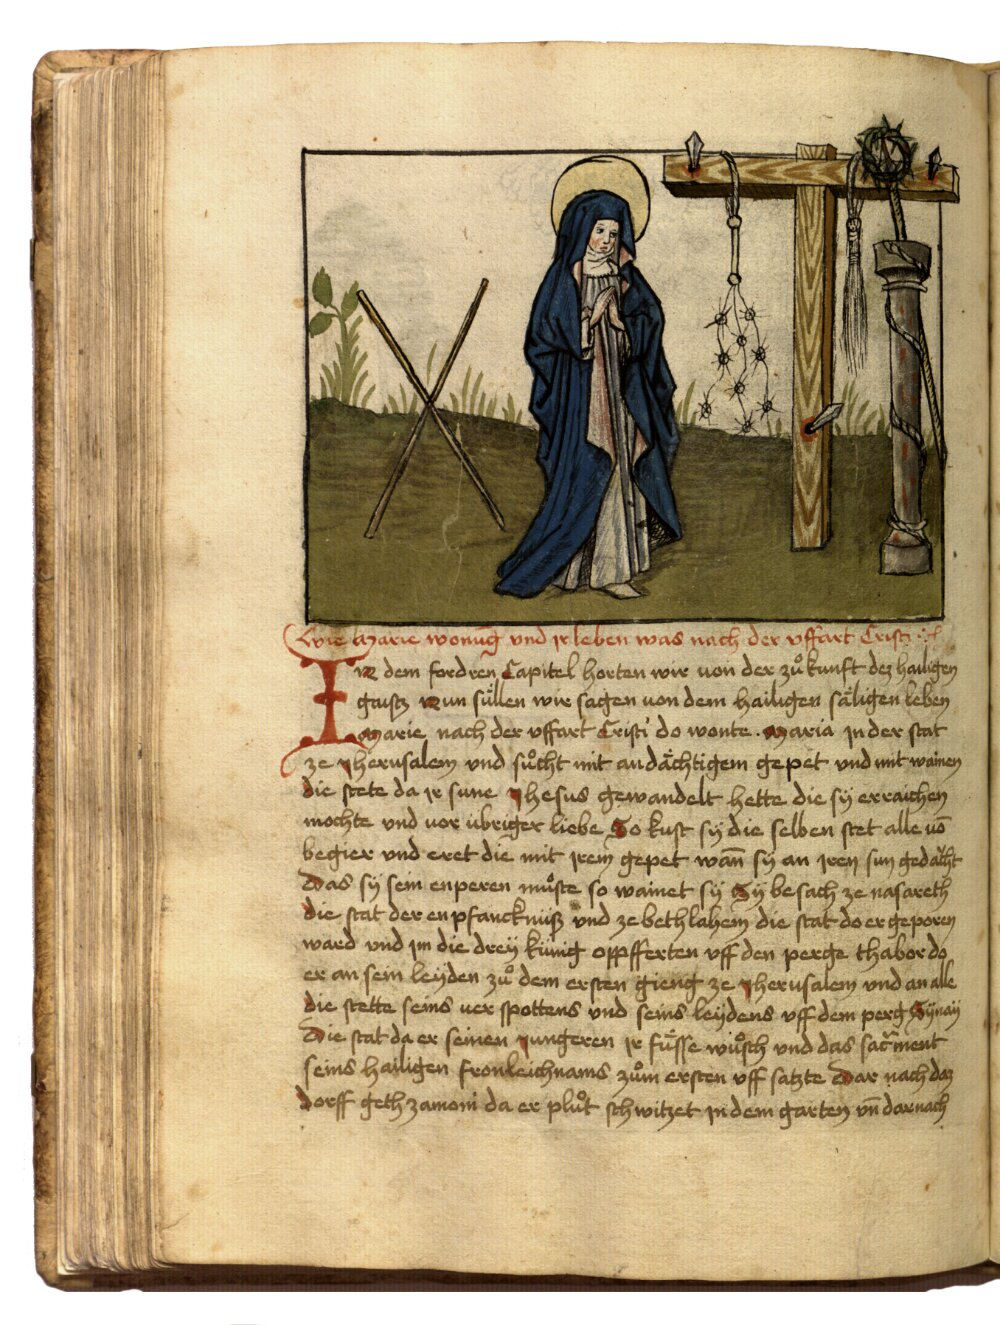 Wie Marie wonūg vnd jr leben was nach der vffart Cristi
In dem fordren Capitel horten wir von der zuͦkunft dez hailigen
gaistz Nun süllen wir sagen von dem hailigen säligen leben
Marie nach der vffart Cristi do wonte Maria jn der stat
ze jherusalem vnd suͦcht mit andächtigem gepet vnd mit wainen
die stete da jr sune jhesus gewandelt hette die sÿ erraichen
mochte vnd vor übriger liebe So kust sÿ die selben stet alle vō
begier vnd eret die mit jrem gepet wañ sÿ an jren sun gedächt
Das sÿ sein enperen muͦste so wainet sÿ Sÿ besach ze nasareth
die stat der enpfancknüß vnd ze bethlahem die stat do er geporen
ward vnd jm die dreÿ küinig oppfferten vff den perge thabor do
er an sein leÿden zuͦ dem ersten gieng ze jherusalem vnd an alle
die stette seins verspottens vnd seins leÿdens vff dem perg Sÿnaÿ
Die stat da er seinen jungeren jr füsse wuͦsch vnd das sacrment
seins hailigen fronleichnams zuͦm ersten vff satzte Dar nach daz
dorff gethzamoni da er pluͦt schwitzet jn dem garten vñ darnach